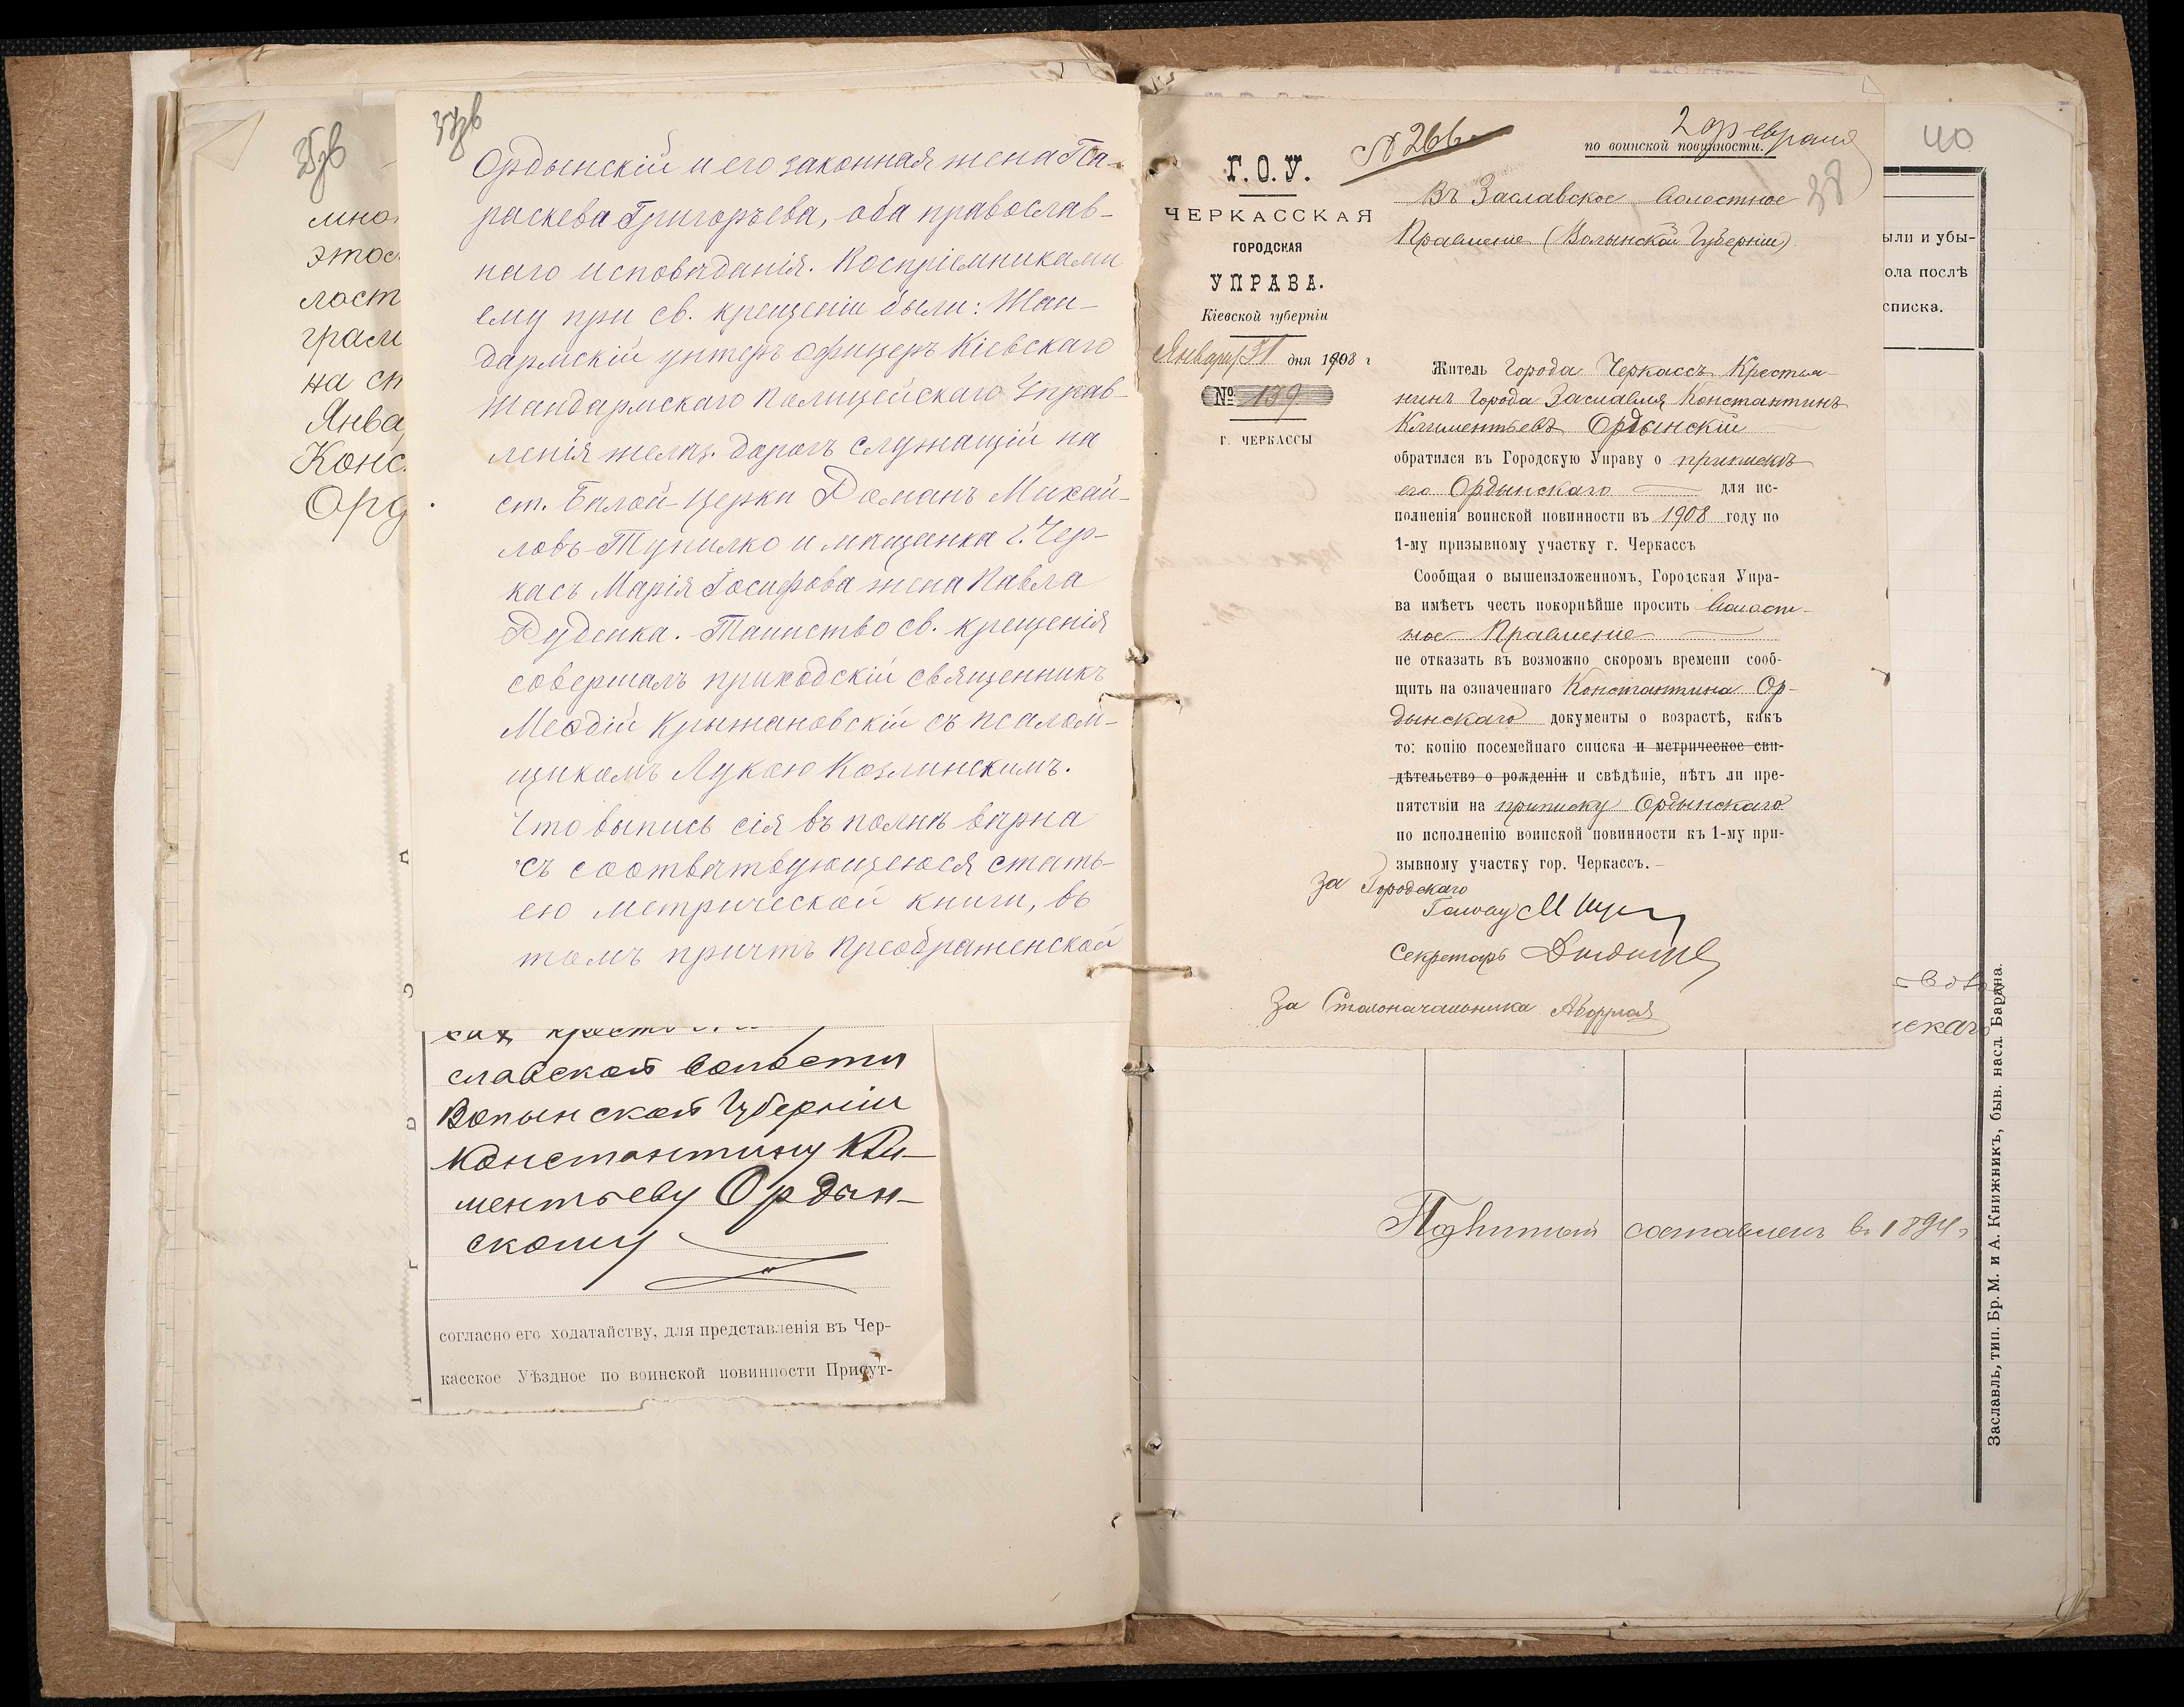 35зв
мно
этос
ласт
грам
на сп
Янва
Конс
Орд
37зв
Ордынскій и его законная жена Па-
раскева Григорьева, оба православ-
наго исповѣданія. Воспріемниками
ему при св. крещеніи были: Жан-
дармскій унтеръ офицеръ Кіевскаго
Жандармскаго Полицейскаго Управ-
ленія желѣз. дорогъ служащій на
ст. Бѣлой-Церкви Романъ Михай-
ловъ Тупилко и мѣщанка г. Чер-
касъ Марія Іосифова жена Павла
Руденка. Таинство св. крещенія
совершалъ приходскій священникъ
Меѳодій Крыжановскій съ псалом-
щикомъ Лукою Козлинскимъ.
Что выпись сія въ полнѣ вѣрна
съ соотвѣтвующеюся стать-
ею метрической книги, въ
томъ причтъ Преображенской
славской волости
Волынской Губерніи
Константину Кли-
ментьеву Ордын-
скому
согласно его ходатайству, для представленія въ Чер-
касское Уѣздное по воинской повинности Присут-
№ 266
2 февраля
по воинской повинности.
38
40
Г. О. У.
ЧЕРКАССКАЯ
ГОРОДСКАЯ
УПРАВА.
Кіевской губерніи
Января 31 дня 1908 г
№ 139
Г. ЧЕРКАССЫ
Въ Заславское Волостное
Правленіе (Волынской Губерніи)
Житель Города Черкассъ Крестья-
нинъ Города Заславля Константинъ
Климентьевъ Ордынскій
обратился въ Городскую Управу о припискѣ
его Ордынскаго для ис-
полненія воинской повинности въ 1908 году по
1-му призывному участку г. Черкассъ
Сообщая о вышеизложенномъ, Городская Упра-
ва имѣетъ честь покорнѣйше просить Волост-
ное Правленіе
не отказать въ возможно скоромъ времени сооб-
щить на означеннаго Константина Ор-
дынскаго документы о возрастѣ, какъ
то: копію посемейнаго списка и метрическое сви-
дѣтельство о рожденіи и свѣдѣніе, нѣтъ ли пре-
пятствіи на приписку Ордынскаго
по исполненію воинской повинности къ 1-му при-
зывному участку гор. Черкассъ.
За Городскаго
Голову
Секретарь
За Столоначальника
ыли и убы-
ола послѣ
списка.
составленъ въ 1894 г
Заславль, тип. Бр. М. и А. Книжникъ, быв. насл. Барана.